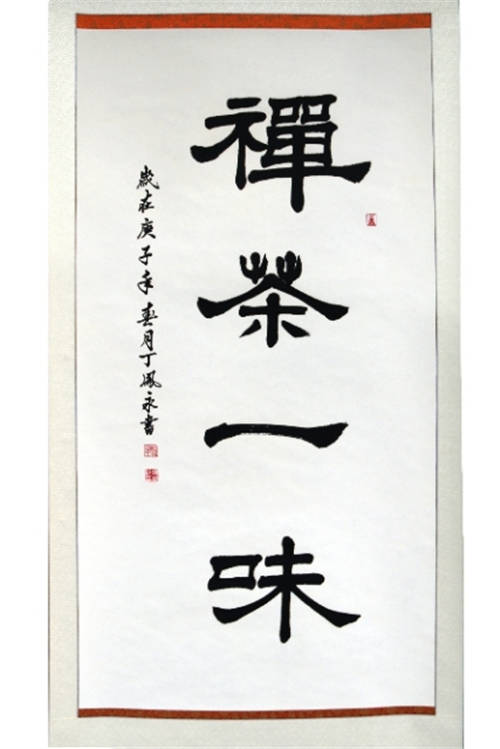 禪茶一味
歲在庚子年春月丁鳳永書